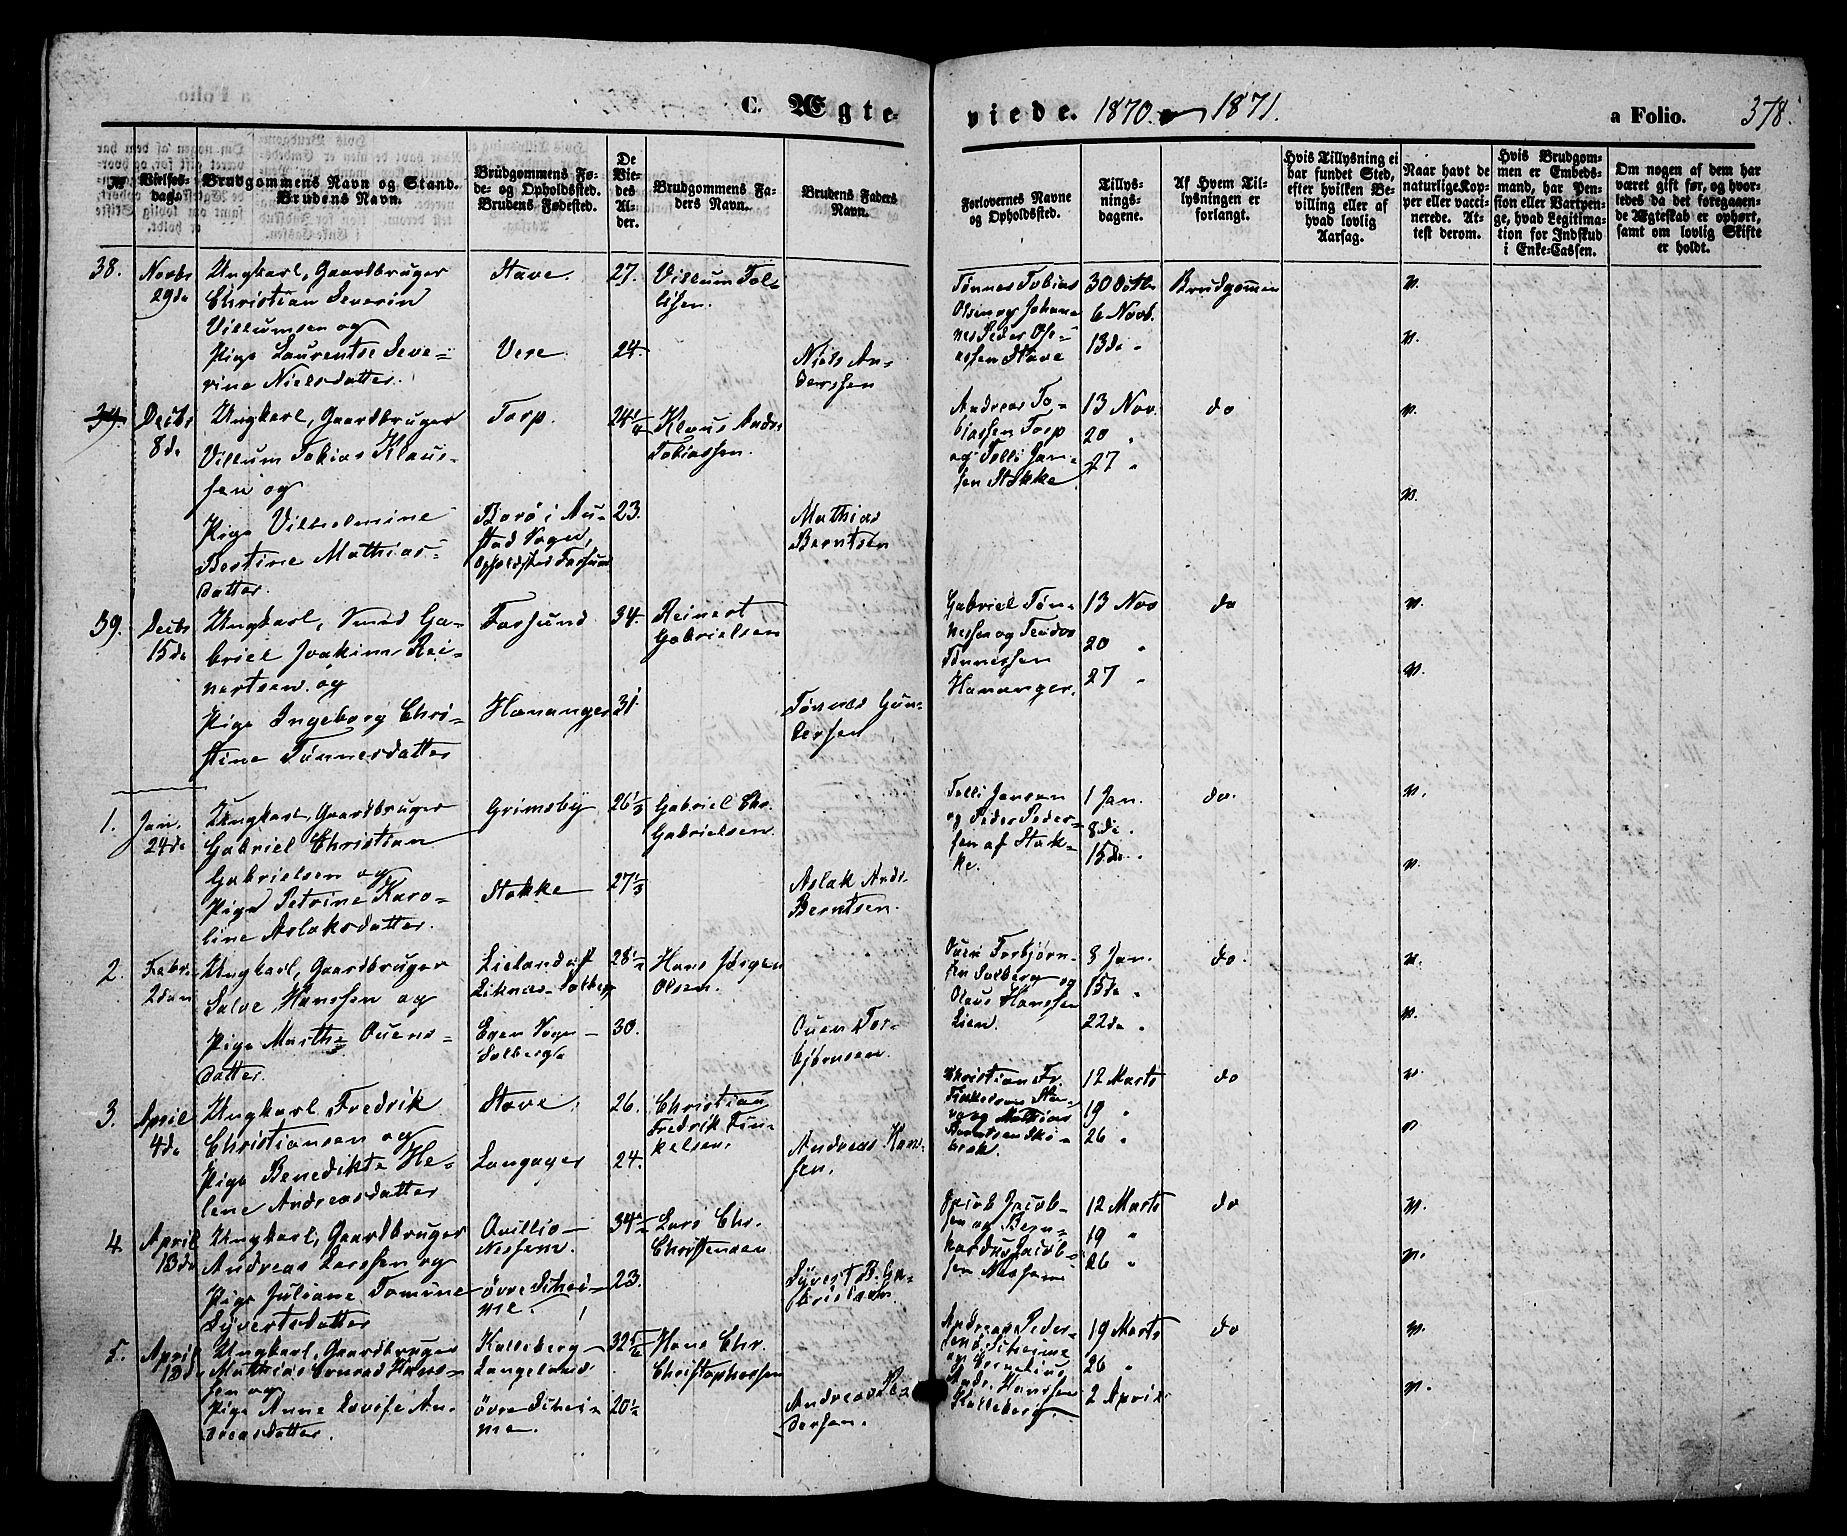 C. Ægteviede. 1870 og 1871.
a Folio. 378.
№
Vielses-
dag.
Brudgommens Navn og Stand.
Brudens Navn.
Brudgommens Fø-
de- og Opholdsted.
Brudens Fødested.
De
Vie-
des
Al-
der.
Brudgommens Fa-
ders Navn.
Brudens Faders
Navn.
Forlovernes Navne
og Opholdsted.
Tillys-
nings-
dagene.
Af Hvem Til-
lysningen er
forlangt.
Hvis Tillysning ei
har fundet Sted,
efter hvilken Be-
villing eller af
hvad lovlig
Aarsag.
Naar havt de
naturlige Kop-
per eller vacci-
nerede. At-
test derom.
Hvis Brudgom-
men er Embeds-
mand, har Pen-
sion eller Vartpen-
ge, hvad Legitima-
tion for Indskud
i Enke-Cassen.
Om nogen af dem har
været gift før, og hvor-
ledes da det foregaaen-
de Ægteskab er ophørt,
samt om lovlig Skifte
er holdt.
38. Novbr 29de
Ungkarl, Gaardbruger
Christian Severin
Villumsen og
Pige Laurentse Seve-
rine Nielsdatter.
Stave 27. Villum Tol-
lisen.
Vere. 24. Niels An-
derssen
Tønnes Tobias
Olsen og Johan-
nes Peder
Stave
30 Octbr
6 Novb.
13de "
Brudgommen
v.
v.
39. Decbr 8de
Ungkarl, Gaardbruger
Villum Tobias Klaus-
sen og
Pige Vilhelmine
Bertine Mathias-
datter.
Torp. 24 1/4 Klaus Andr.
Tobiassen.
Borø i Au-
stad Sogn,
Opholdsted Farsund
23. Mathias
Berntsen
Andreas To-
biassen Torp
og Tolli Jan-
sen Stokke
13 Nov.
20 "
27 "
do
v.
v.
39. Decbr 15de
Ungkarl, Smed Ga-
briel Joakim Rei-
nertsen og
Pige Ingeborg Chri-
stine Tønnesdatter
Farsund 34. Reinert
Gabrielsen
Hananger 31. Tønnes Gun-
dersen
Gabriel Tøn-
nessen og Teodor
Tønnessen
Hananger.
13 Nov
20 "
27 "
do
v.
v.
1. Jan. 24de
Ungkarl, Gaardbruger
Gabriel Christian
Gabrielsen og
Pige Petrine Karo-
line Aslaksdatter.
Grimsby 26 1/3 Gabriel Chr.
Gabrielsen.
Stokke 27 1/3 Aslak Andr.
Berntsen.
Tolli Jansen
og Peder Peder-
sen af Stok-
ke.
1 Jan.
8de
15de
do.
v.
v.
2. Febr. 2den
Ungkarl, Gaardbruger
Salve Hanssen og
Pige Marthe Ouens-
datter.
Lieland af
Liknes - Solberg
28 1/2 Hans Jørgen
Olsen.
Egen Sogn -
Solberg.
30. Ouen Tor-
bjørnsen.
Ouen Torbjørn-
sen Solberg og
Olaus Hanssen
Lien.
8 Jan.
15de "
22de "
do.
v.
v.
3. April 4de
Ungkarl Fredrik
Christiansen og
Pige Benedikte He-
lene Andreasdatter
Stave. 26. Christian
Fredrik Fin-
kelsen.
Langager 24. Andreas Han-
sen.
Christian Fr.
og Mathias
Berntsen
12 Marts
19 "
26 "
do
v.
v
4. April 13de
Ungkarl, Gaardbruger
Andreas Larssen og
Pige Juliane Tomine
Syvertsdatter
Qvillio-
Nesheim. 34 1/2 Lars Chr.
Christensen
øvre Skei-
me. 23. Syvert B. Ga-
brielsen.
Jacob Jacob-
sen og Bern-
hardus Jacob-
sen Nesheim
12 Marts
19 "
26 "
do
v.
v.
5. April 18de
Ungkarl, Gaardbruger
Mathias Conrad Hans-
sen og
Pige Anne Lovise An-
dreasdatter.
Kalleberg-
Langeland. 32 5/6 Hans Chr.
Christophersen
øvre Skei-
me. 20 1/2 Andreas Pe-
dersen.
Andreas Peder-
sen ø. Skeime
og Cornelius
Andr. Hanssen
Kalleberg.
19 Marts
26 "
2 April
do
v.
v.